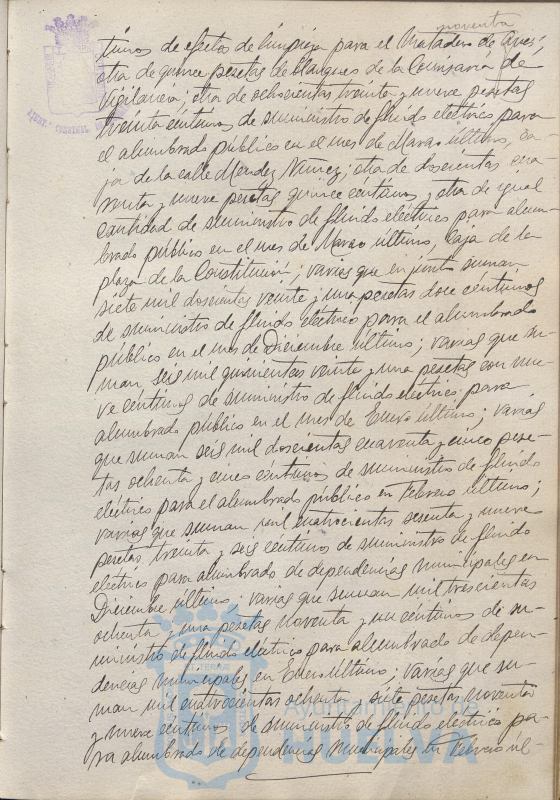 noventa
timos de efectos de limpieza para el Matadero de Aves;
otra de quince pesetas de blanqueo de la Comisaria de
Vigilancia; otra de ochocientas treinta y nueve pesetas
treinta céntimos de suministro de fluido eléctrico para
el alumbrado público en el mes de Marzo último, ca-
ja de la calle Mendez Nuñez; otra de doscientas cua
renta y nueve pesetas quince céntimos y otra de igual
cantidad de suministro de fluido eléctrico para alum-
brado público en el mes de Marzo último, caja de la
plaza de la Constitución; varias que en junto suman
siete mil doscientas veinte y una pesetas doce céntimos
de suministro de fluido eléctrico para el alumbrado
público en el mes de Diciembre último; varias que su-
man seis mil quinientas veinte y una pesetas con nue
ve céntimos de suministro de fluido eléctrico para
alumbrado público en el mes de Enero último; varias
que suman seis mil doscientas cuarenta y cinco pese-
tas ochenta y cinco céntimos de suministro de fluido
eléctrico para el alumbrado público en Febrero último;
varias que suman mil cuatrocientas sesenta y nueve
pesetas treinta y seis céntimos de suministro de fluido
eléctrico para alumbrado de dependencias municipales en
Diciembre último; varias que suman mil trescientas
ochenta y una pesetas noventa y un céntimos de su-
ministro de fluido eléctrico para alumbrado de depen-
dencias municipales en Enero último; varias que su-
man mil cuatrocientas ochenta y siete pesetas noventa
y nueve céntimos de suministro de fluido eléctrico pa-
ra alumbrado de dependencias municipales en Febrero úl-
Ayuntamiento de
HUELVA